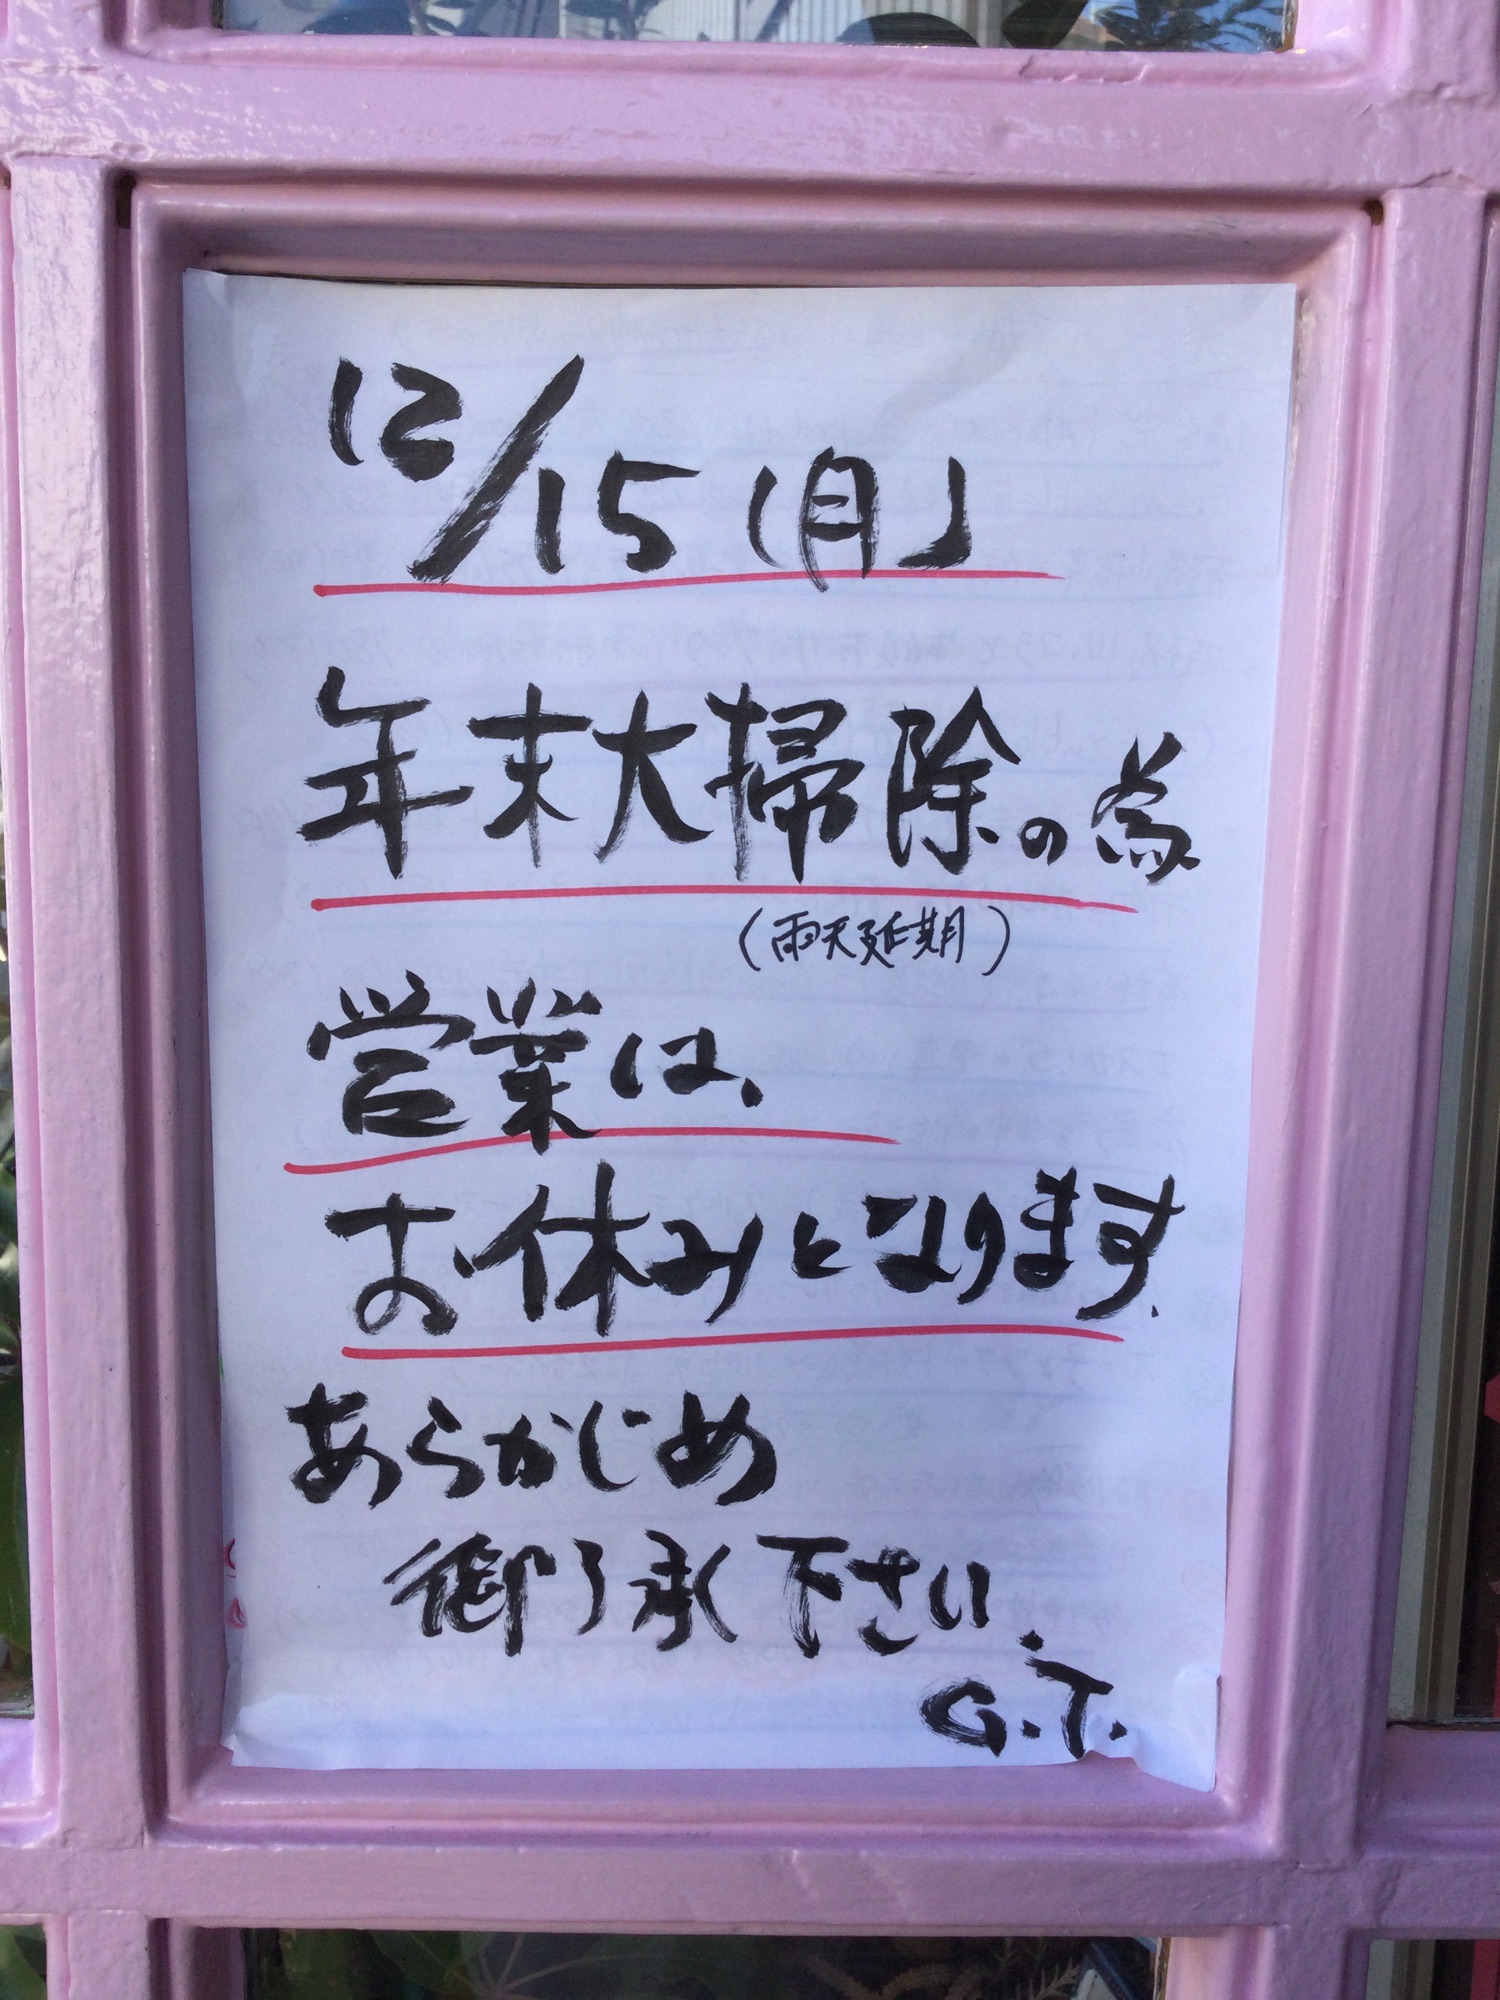 12/15(月)
年末大掃除の為
(雨天延期)
営業は、
お休みとなります.
あらかじめ
御了承下さい.
G.T.